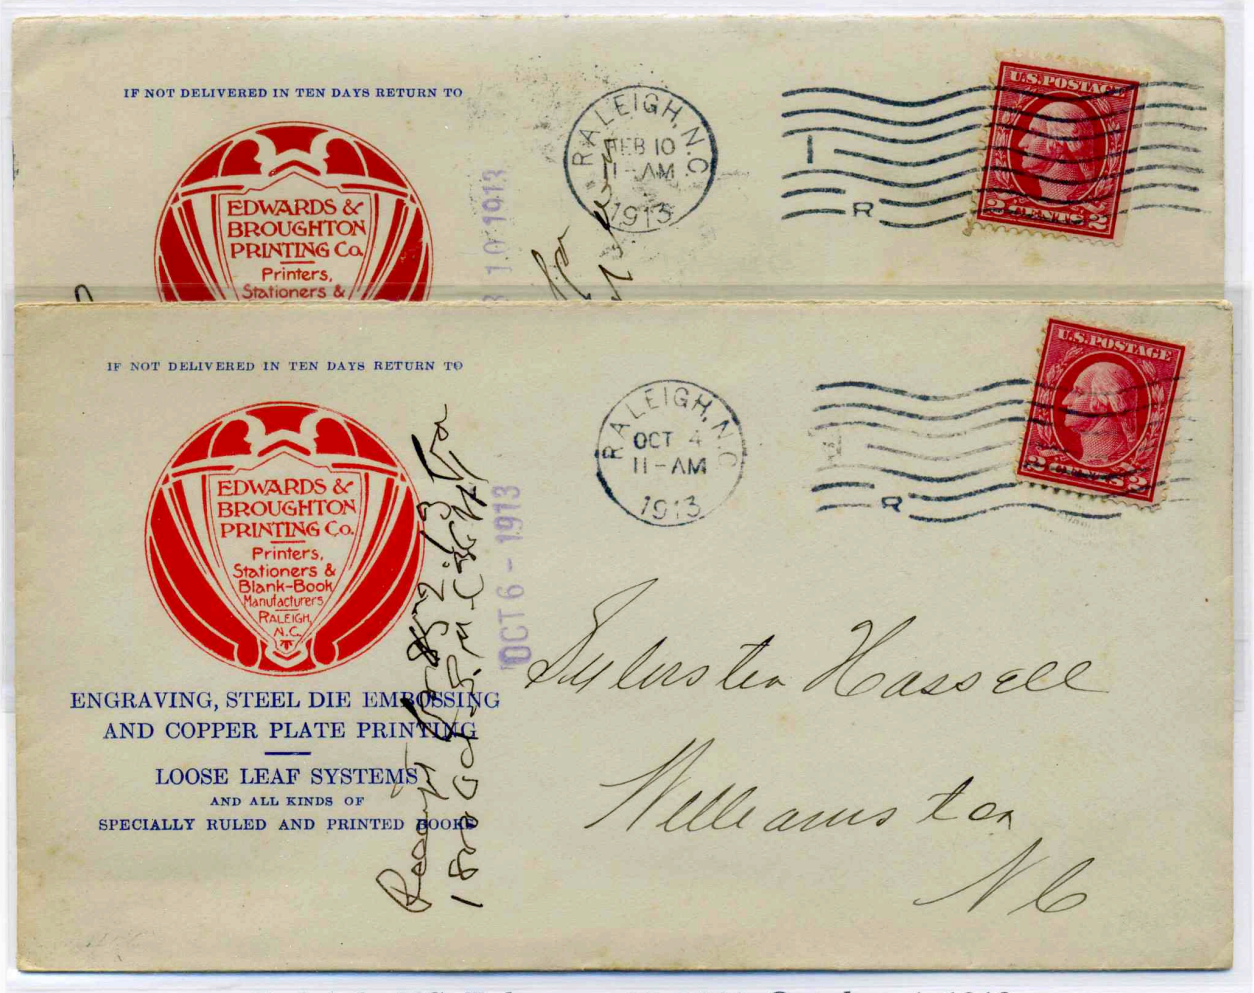 IF NOT DELIVERED IN TEN DAYS RETURN TO
EDWARDS &
BROUGHTON
PRINTING Co.
Printers,
Stationers &
10 1913
RALEIGH, N.C.
FEB 10
11-AM
1913
for
R
U.S. POSTAGE
2 CENTS 2
IF NOT DELIVERED IN TEN DAYS RETURN TO
EDWARDS &
BROUGHTON
PRINTING Co.
Printers,
Stationers &
Blank-Book
Manufacturers
RALEIGH,
N.C.
ENGRAVING, STEEL DIE EMBOSSING
AND COPPER PLATE PRINTING
LOOSE LEAF SYSTEMS
AND ALL KINDS OF
SPECIALLY RULED AND PRINTED BOOKS
OCT 6 - 1913
RALEIGH, N.C.
OCT 4
11-AM
1913
R
U.S. POSTAGE
2 2
Sylvester Hassell
Williamston
N C